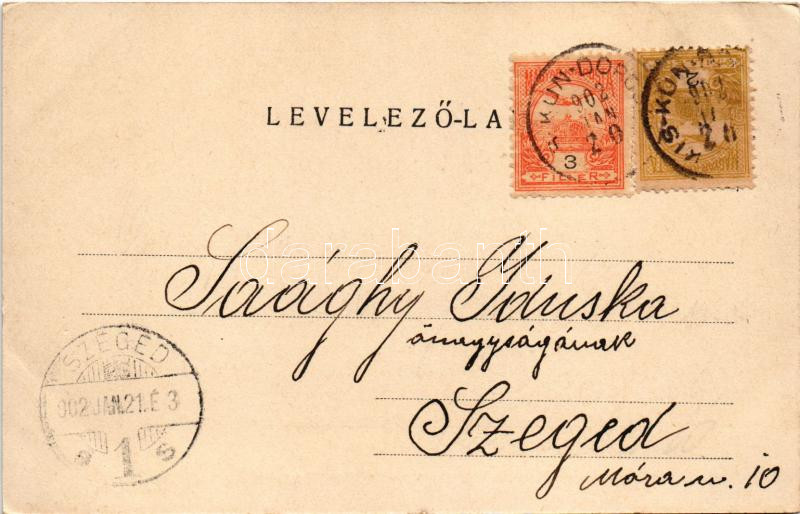 LEVELEZŐ-LA
S-KUN-DOR
902
JAN
20
3
FILLÉR
KIS-KUN-
20
darabanth
Saághy Iduska
őnagyságának
Szeged
Móra u. 10
SZEGED
902 JAN. 21. É 3
1